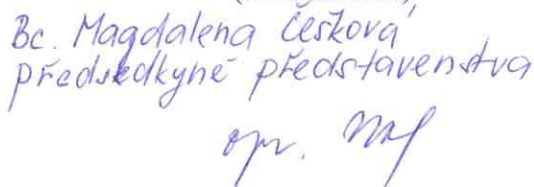 Bc. Magdalena Češková
předsedkyně představenstva
opr.